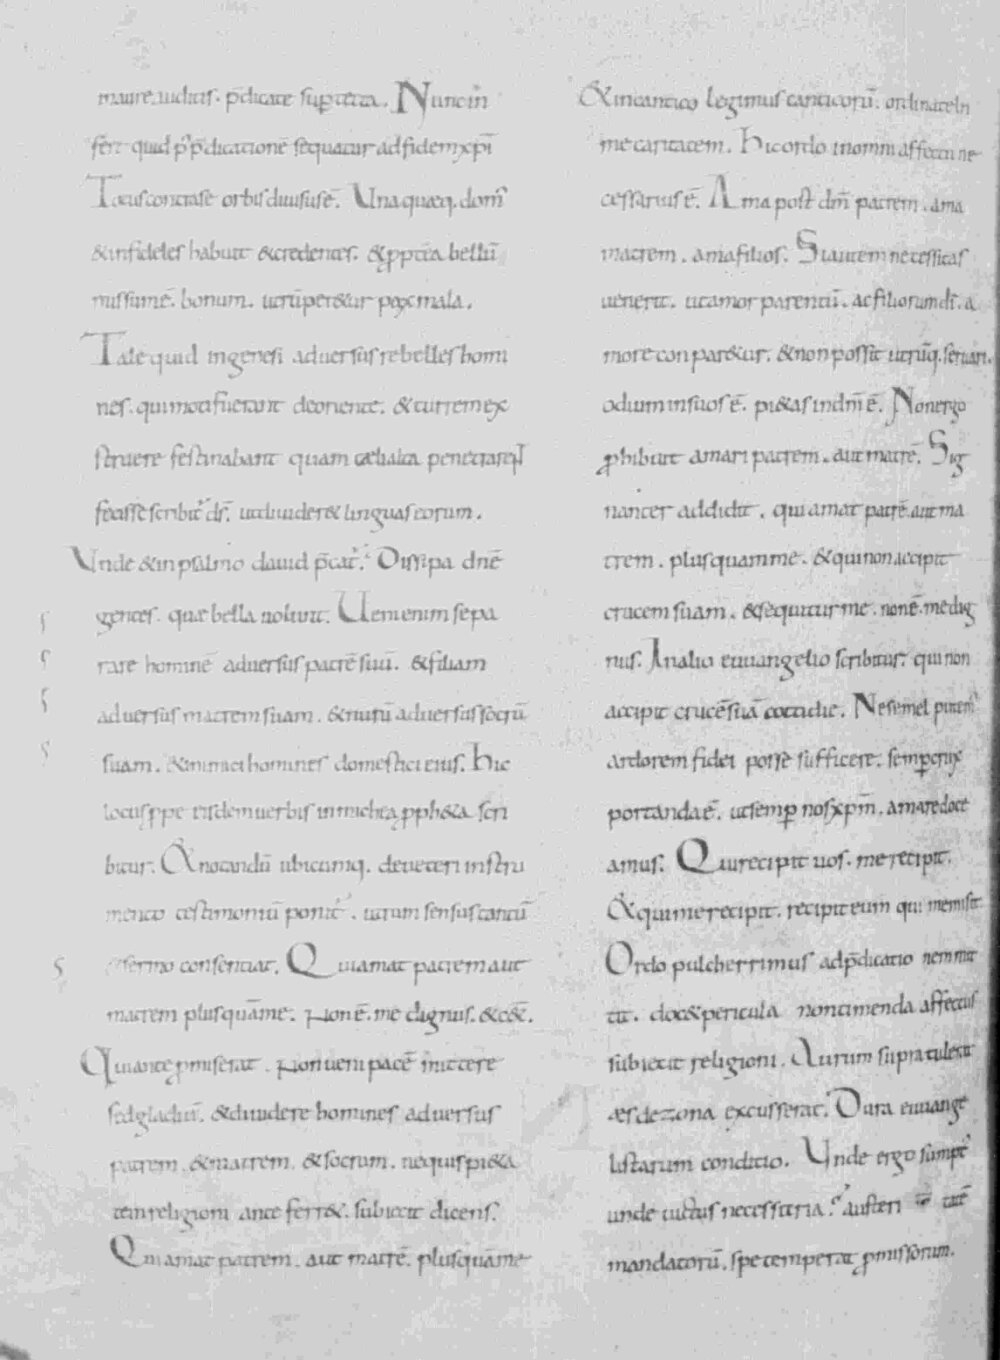 in aure auditis. p̄dicate sup tecta. Nunc in
fert quid p̄ p̄dicationē sequatur ad fidem xp̄i
Totus contra sē orbis diuisus ē. Una quæq. dom
& infideles habuit & credentes. & ꝓpterea bellū
missum ē. bonum. ut rūperetur pax mala.
Tale quid in genesi aduersus rebelles homi
nes. qui moti fuerant de oriente. & turrem ex
struere festinabant quam cæli alta penetrarent
fecisse scribit̄ ds̄. ut diuideret linguas eorum.
Unde & in psalmo dauid p̄cat̄. Dissipa dn̄e
gentes. quæ bella uolunt. Ueni enim sepa
rare hominē aduersus patrē suū. & filiam
aduersus matrem suam. & nurū aduersus socrū
suam. & inimici hominis domestici eius. Hic
locus ꝓpe eisdem uerbis in michea ꝓph&a scri
bitur. & notandū ubicumq. de ueteri instru
mento testimoniū ponit̄. utrum sensus tantū
& sermo consentiat. Qui amat patrem aut
matrem plus quā me. Non ē. me dignus. & c&̄.
Qui ante ꝓmiserat. Non ueni pacē mittere
sed gladiū. & diuidere homines aduersus
patrem. & matrem. & socrum. ne quis pi&a
tem religioni ante ferr&. subiecit dicens.
Qui amat patrem. aut matrē. plus quā me
& in cantico legimus canticorū. ordinate in
me caritatem. Hic ordo in omni affectu ne
cessarius ē. Ama post dm̄ patrem. ama
matrem. ama filios. Si autem necessitas
uenerit. ut amor parentū. ac filiorum dī. a
more conpar&ur. & non possit utrūq. seruari.
odium in suos ē. pi&as in dm̄ ē. Non ergo
ꝓhibuit amari patrem. aut matrē. Sig
nanter addidit. qui amat patrē. aut ma
trem. plus quam me. & qui non accipit
crucem suam. & sequitur me. non ē. me dig
nus. In alio euuangelio scribitur. qui non
accipit crucē suā cottidie. Ne semel putem
ardorem fidei posse sufficere. semp crux
portanda ē. ut semp nos xpm̄. amare doce
amus. Qui recipit uos. me recipit.
& qui me recipit. recipit eum qui me misit
Ordo pulcherrimus ad p̄dicatio nem mit
tit. doc& pericula non timenda affectus
subiecit religioni. Aurum supra tulerat
æs de zona excusserat. Dura euuange
listarum conditio. Unde ergo sumpt
unde uictus necessaria? austeri tatē
mandatorū. spe temperat ꝓmissorum.